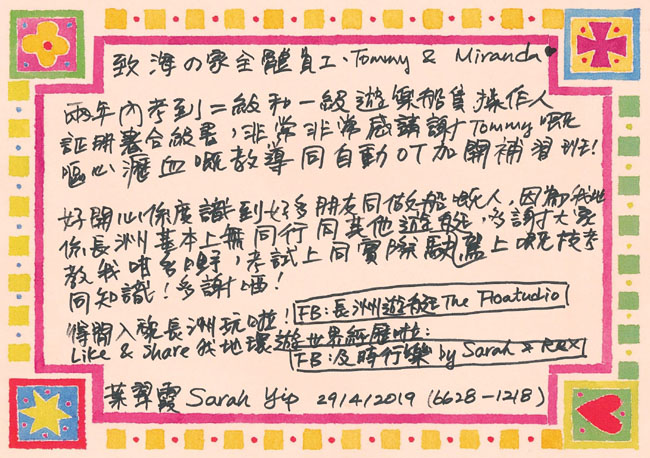 致海の家全體員工、Tommy & Miranda♥
兩年內考到二級和一級遊樂船隻操作人
証明書合級書，非常非常感謝Tommy嘅
嘔心瀝血嘅教導同自動OT加開補習班！
好開心係度識到好多朋友同做船嘅人，因為我地
係長洲基本上無同行同其他遊艇，多謝大家
教我咁多嘢，考試上同實際駕駛上嘅技考
同知識！多謝晒！
得閒入嚟長洲玩啦！FB：長洲遊艇The Floatudio
Like & Share我地環遊世界經歷啦：
FB：及時行樂 by Sarah & REX
葉翠霞 Sarah Yip 29/4/2019 (6628-1218)